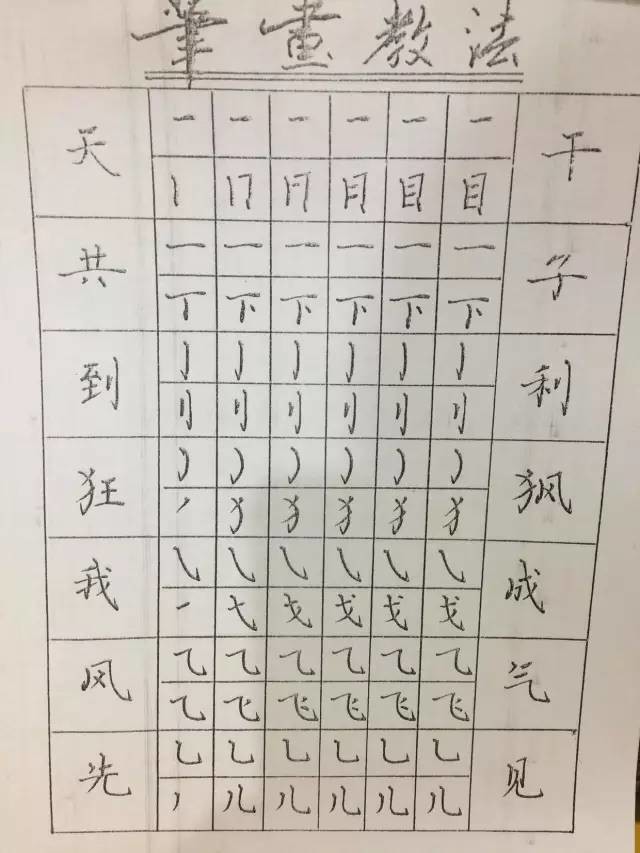 筆畫教法
天 一 一 一 一 一 一 干
丨 冂 月 目 目 目
共 一 一 一 一 一 一 子
丅 下 下 下 下 下
到 亅 亅 亅 亅 亅 亅 利
刂 刂 刂 刂 刂 刂
狂 ㇁ ㇁ ㇁ ㇁ ㇁ ㇁
㇒ 犭 犭 犭 犭 犭
我 ㇂ ㇂ ㇂ ㇂ ㇂ ㇂ 成
一 弋 戈 戈 戈 戈
风 ⺄ ⺄ ⺄ ⺄ ⺄ ⺄ 气
⺄ 飞 飞 飞 飞 飞
先 乚 乚 乚 乚 乚 乚 见
丿 儿 儿 儿 儿 儿